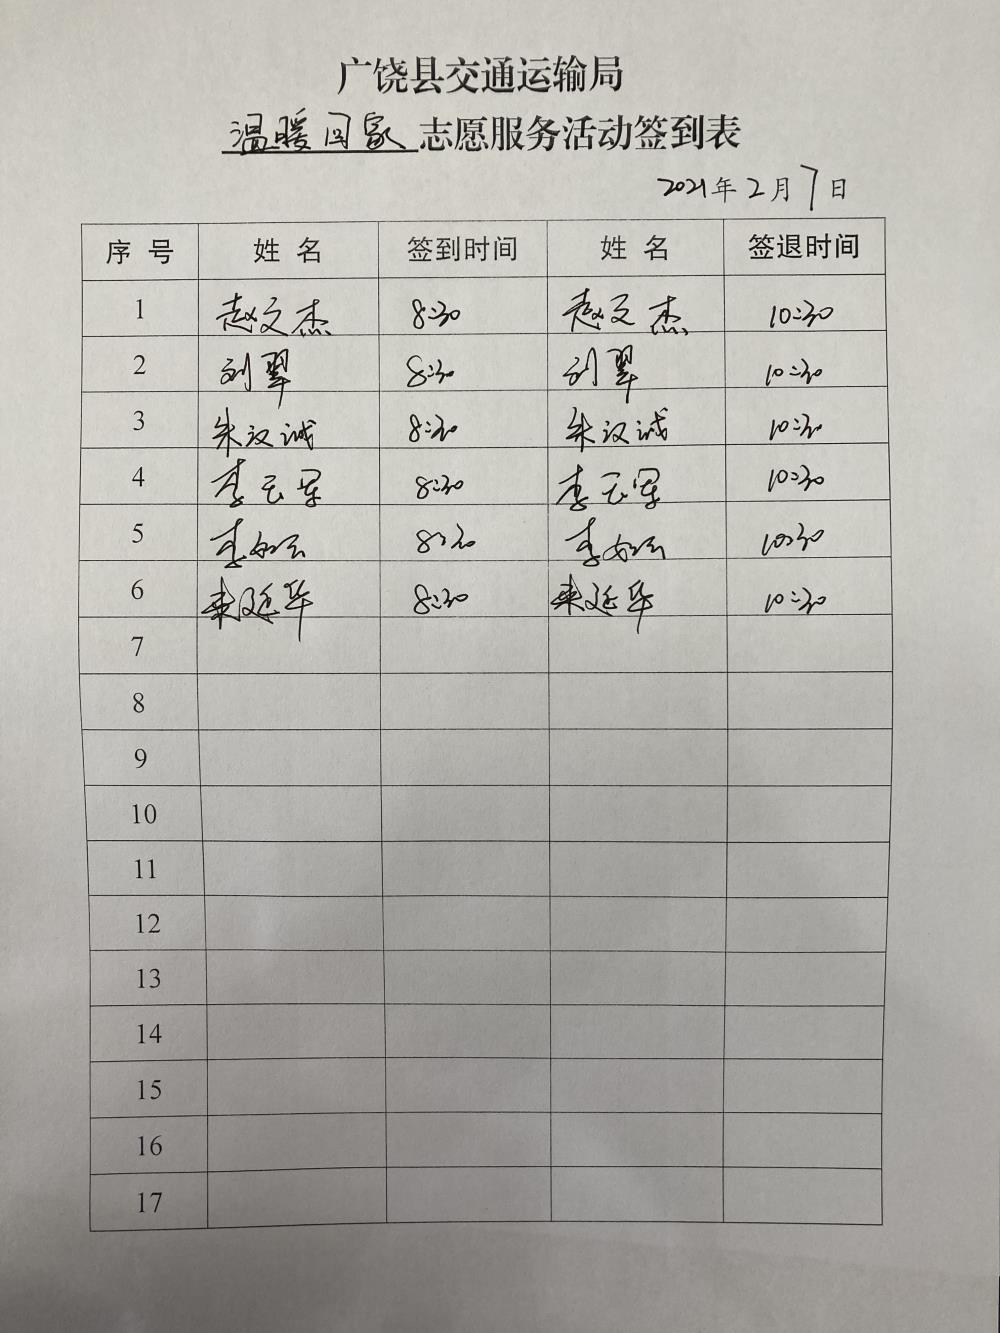 广饶县交通运输局
温暖回家志愿服务活动签到表
2021年2月7日
序号 姓名 签到时间 姓名 签退时间
1 赵文杰 8:30 赵文杰 10:30
2 刘翠 8:30 刘翠 10:30
3 朱汉诚 8:30 朱汉诚 10:30
4 李玉军 8:30 李玉军 10:30
5 李 8:30 李 10:30
6 来延华 8:30 来延华 10:30
7
8
9
10
11
12
13
14
15
16
17